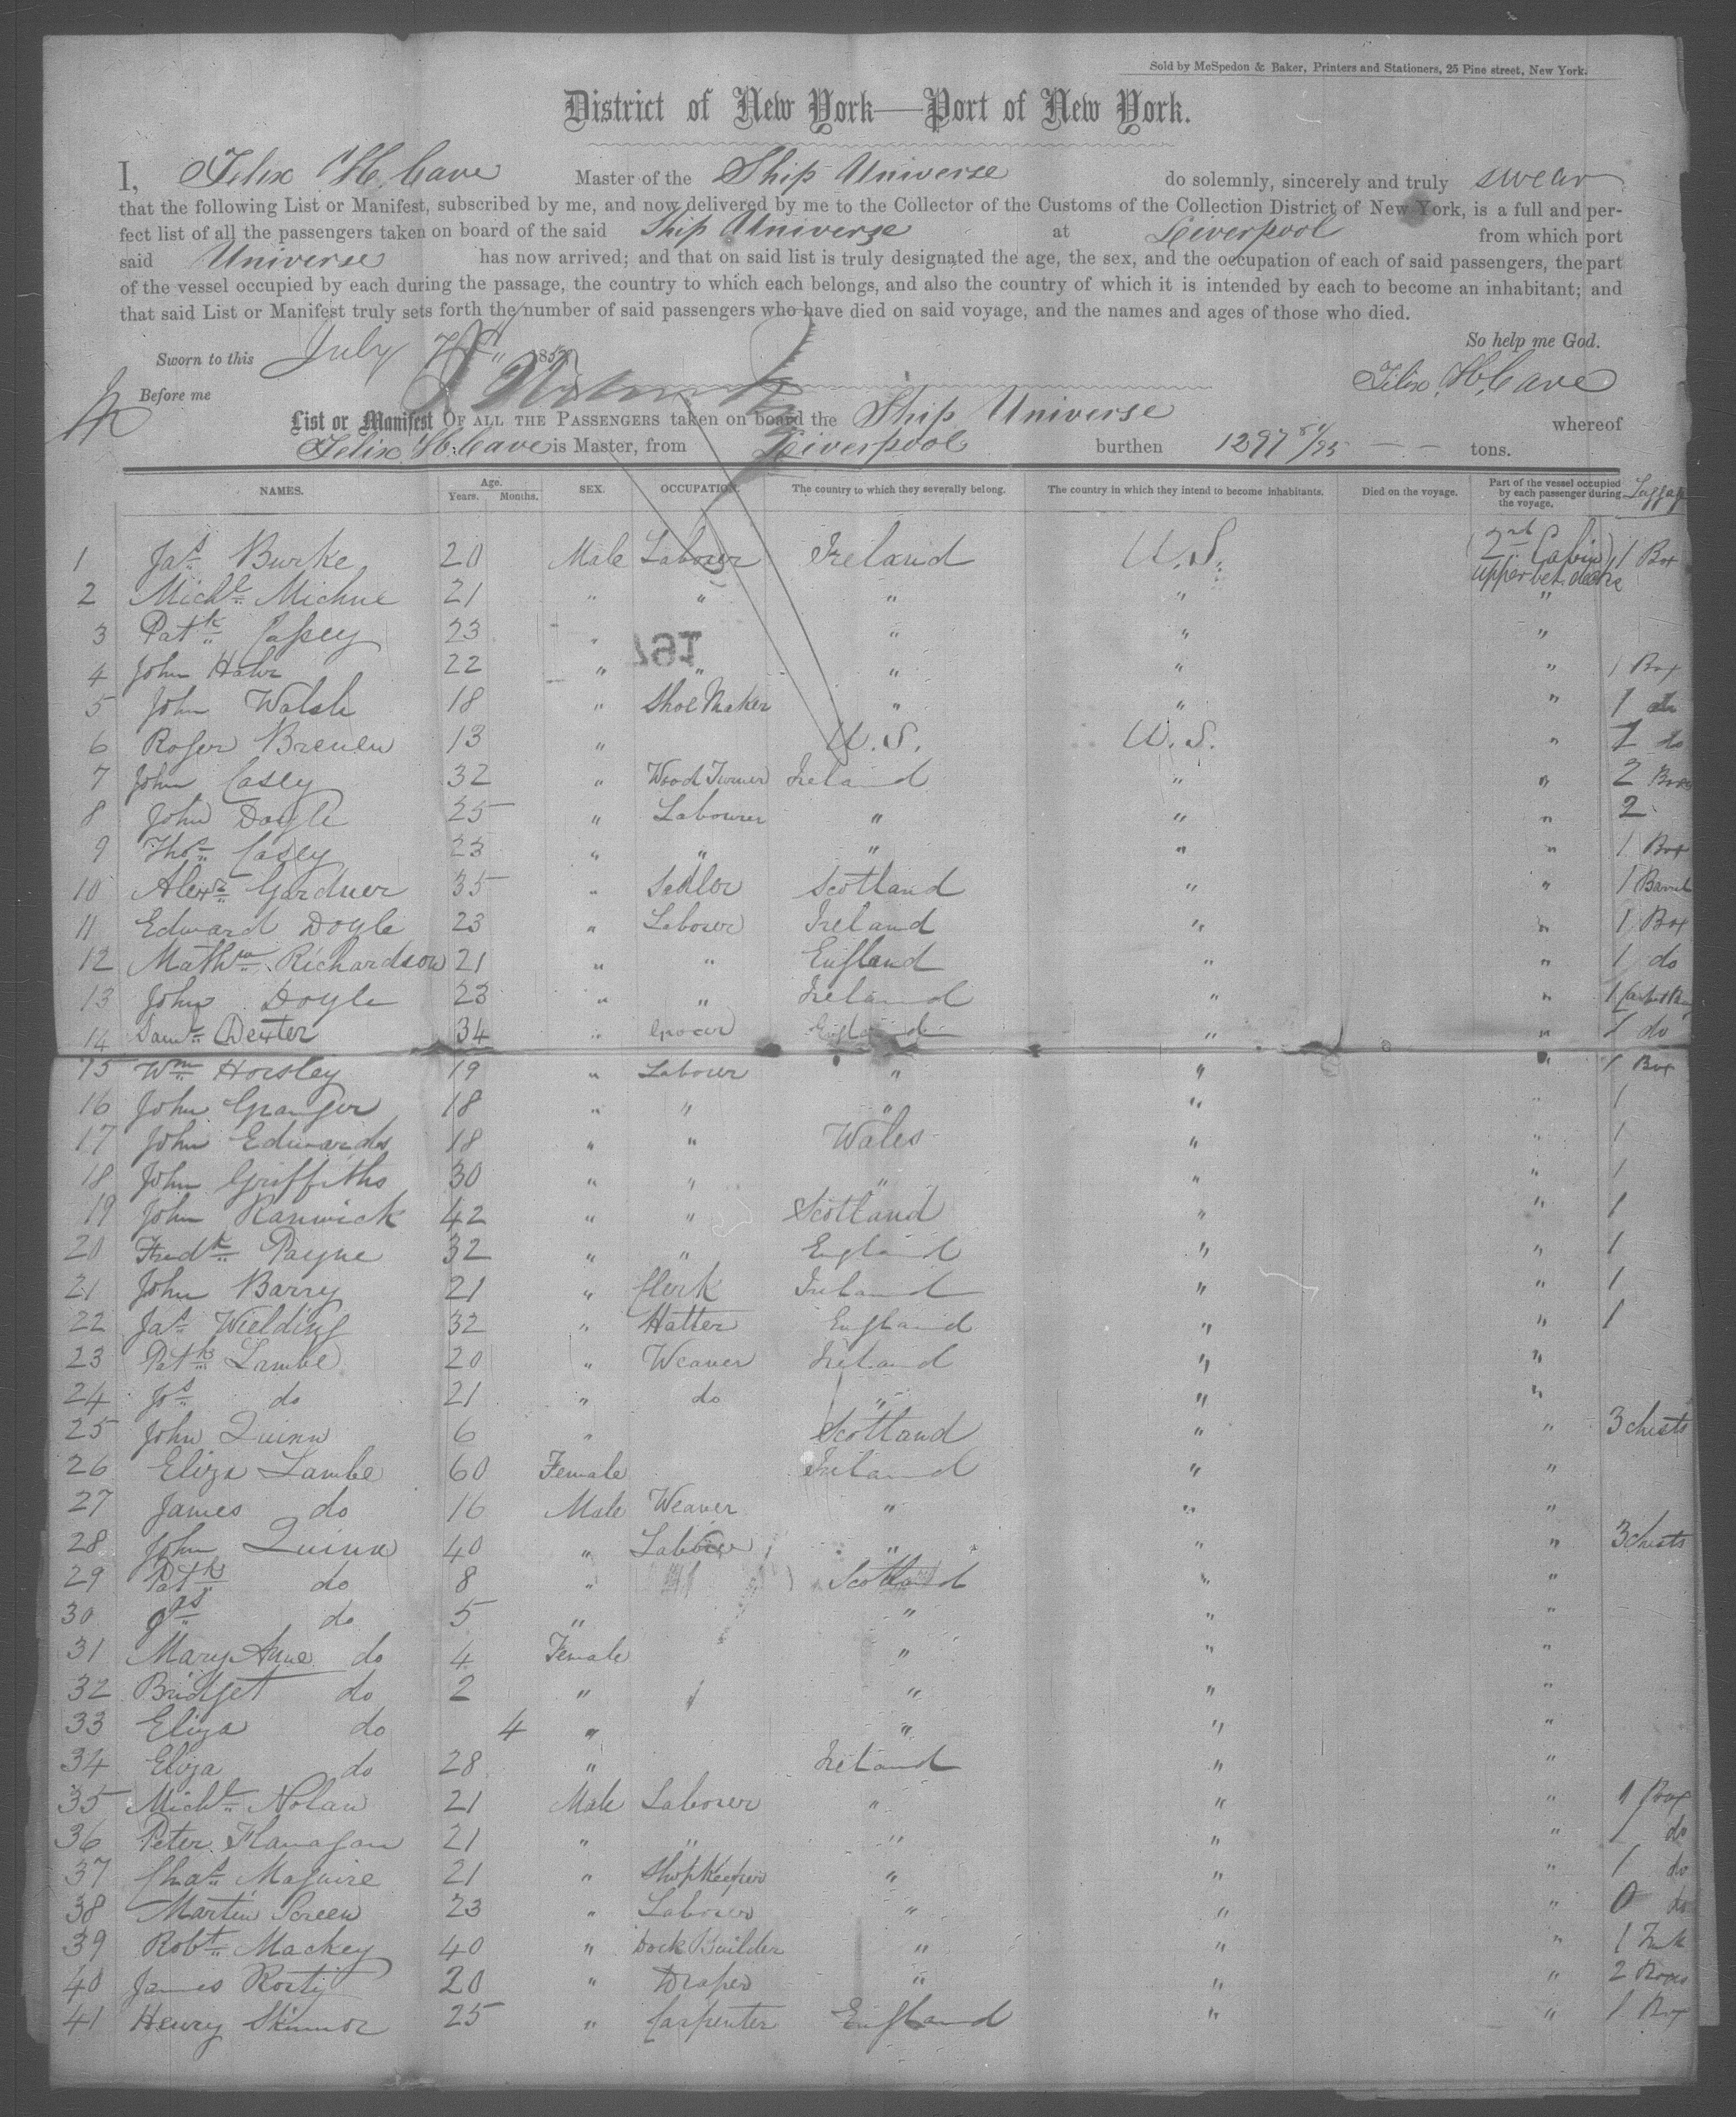 Sold by McSpedon & Baker, Printers and Stationers, 25 Pine street, New York.
District of New York—Port of New York.
I, Felix McCave Master of the Ship Universe do solemnly, sincerely and truly swear
that the following List or Manifest, subscribed by me, and now delivered by me to the Collector of the Customs of the Collection District of New York, is a full and per-
fect list of all the passengers taken on board of the said Ship Universe at Liverpool from which port
said Universe has now arrived; and that on said list is truly designated the age, the sex, and the occupation of each of said passengers, the part
of the vessel occupied by each during the passage, the country to which each belongs, and also the country of which it is intended by each to become an inhabitant; and
that said List or Manifest truly sets forth the number of said passengers who have died on said voyage, and the names and ages of those who died.
So help me God.
Sworn to this July 185
Felix McCave
Before me
List or Manifest OF ALL THE PASSENGERS taken on board the Ship Universe whereof
Felix McCave is Master, from Liverpool burthen 1297 81/95 tons.
NAMES. Age. Years. Months. SEX. OCCUPATION. The country to which they severally belong. The country in which they intend to become inhabitants. Died on the voyage. Part of the vessel occupied by each passenger during the voyage. Luggage
1 Jas Burke 20 Male Laborer Ireland U.S. 2nd Cabin upper bet. decks 1 Box
2 Michl 21 " " " " "
3 Patk Casey 23 " " " "
791
4 John 22 " " " " " 1 Box
5 John Walsh 18 " Shoe Maker " " " 1 do
6 Roger Brenen 13 " U.S. U.S. " 1 do
7 John Casey 32 " Wood Turner Ireland " " 2 Boxes
8 John Doyle 25 " Labourer " " " 2
9 Thos Casey 23 " " " " " 1 Box
10 Alexr Gardner 35 " Sailor Scotland " " 1 Barrel
11 Edward Doyle 23 " Laborer Ireland " " 1 Box
12 Mathw Richardson 21 " " England " " 1 do
13 John Doyle 23 " " Ireland " " 1 Carpet Bag
14 Saml Dexter 34 " Grocer England " " 1 do
15 Wm Horsley 19 " Laborer " " " 1 Box
16 John Granger 18 " " " " " 1
17 John Edwards 18 " " Wales " " 1
18 John Griffiths 30 " " " " " 1
19 John Ranwick 42 " " Scotland " " 1
20 Fredk Payne 32 " " England " " 1
21 John Barry 21 " Clerk Ireland " " 1
22 Jas Wielding 32 " Hatter England " " 1
23 Patk Lambe 20 " Weaver Ireland " "
24 Jos do 21 " do " " "
25 John Quinn 6 " Scotland " " 3 chests
26 Eliza Lambe 60 Female Ireland " "
27 James do 16 Male Weaver " " "
28 John Quinn 40 " Laborer " " " 3 chests
29 Patk do 8 " Scotland " "
30 Jas do 5 " " " "
31 Mary Anne do 4 Female " " "
32 Bridget do 2 " " " "
33 Eliza do 4 " " " "
34 Eliza do 28 " Ireland " "
35 Michl Nolan 21 Male Laborer " " " 1 Box
36 Peter Flanagan 21 " " " " " 1 do
37 Chas Maguire 21 " Shopkeeper " " " 1 do
38 Martin Screen 23 " Laborer " " " 0 do
39 Robt Mackey 40 " Dock Builder " " " 1 Tnk
40 James 20 " Draper " " " 2 Boxes
41 Henry Skinnor 25 " Carpenter England " " 1 Box